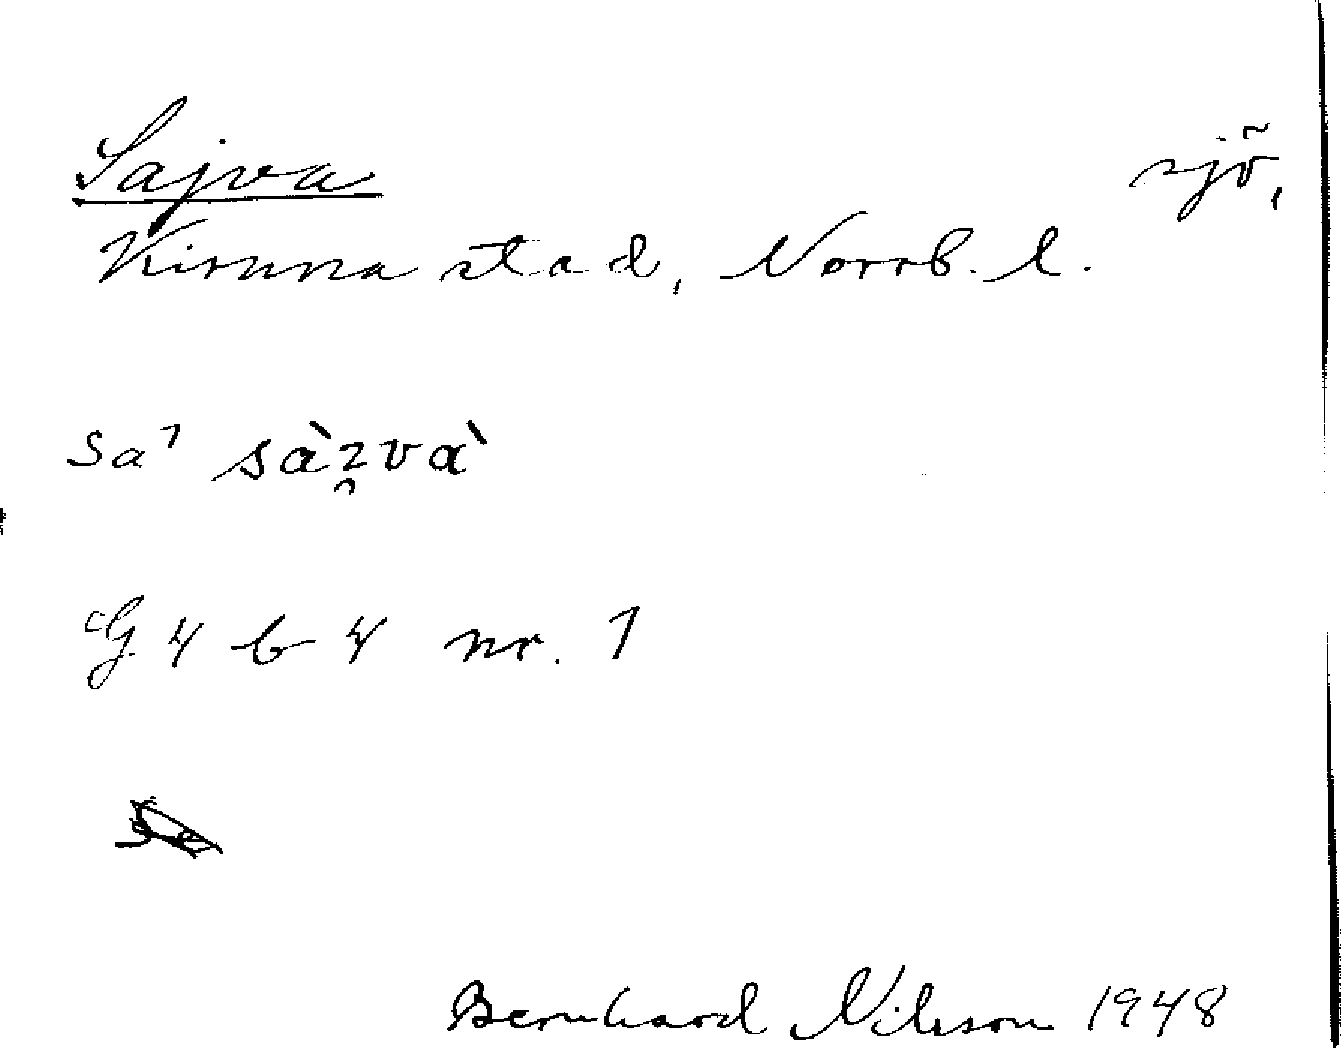 Sajva sjö,
Kiruna stad, Norrb. l.
sa⁊ sàı̯và
G 4 b 4 nr. 1
Bernhard Nilsson 1948